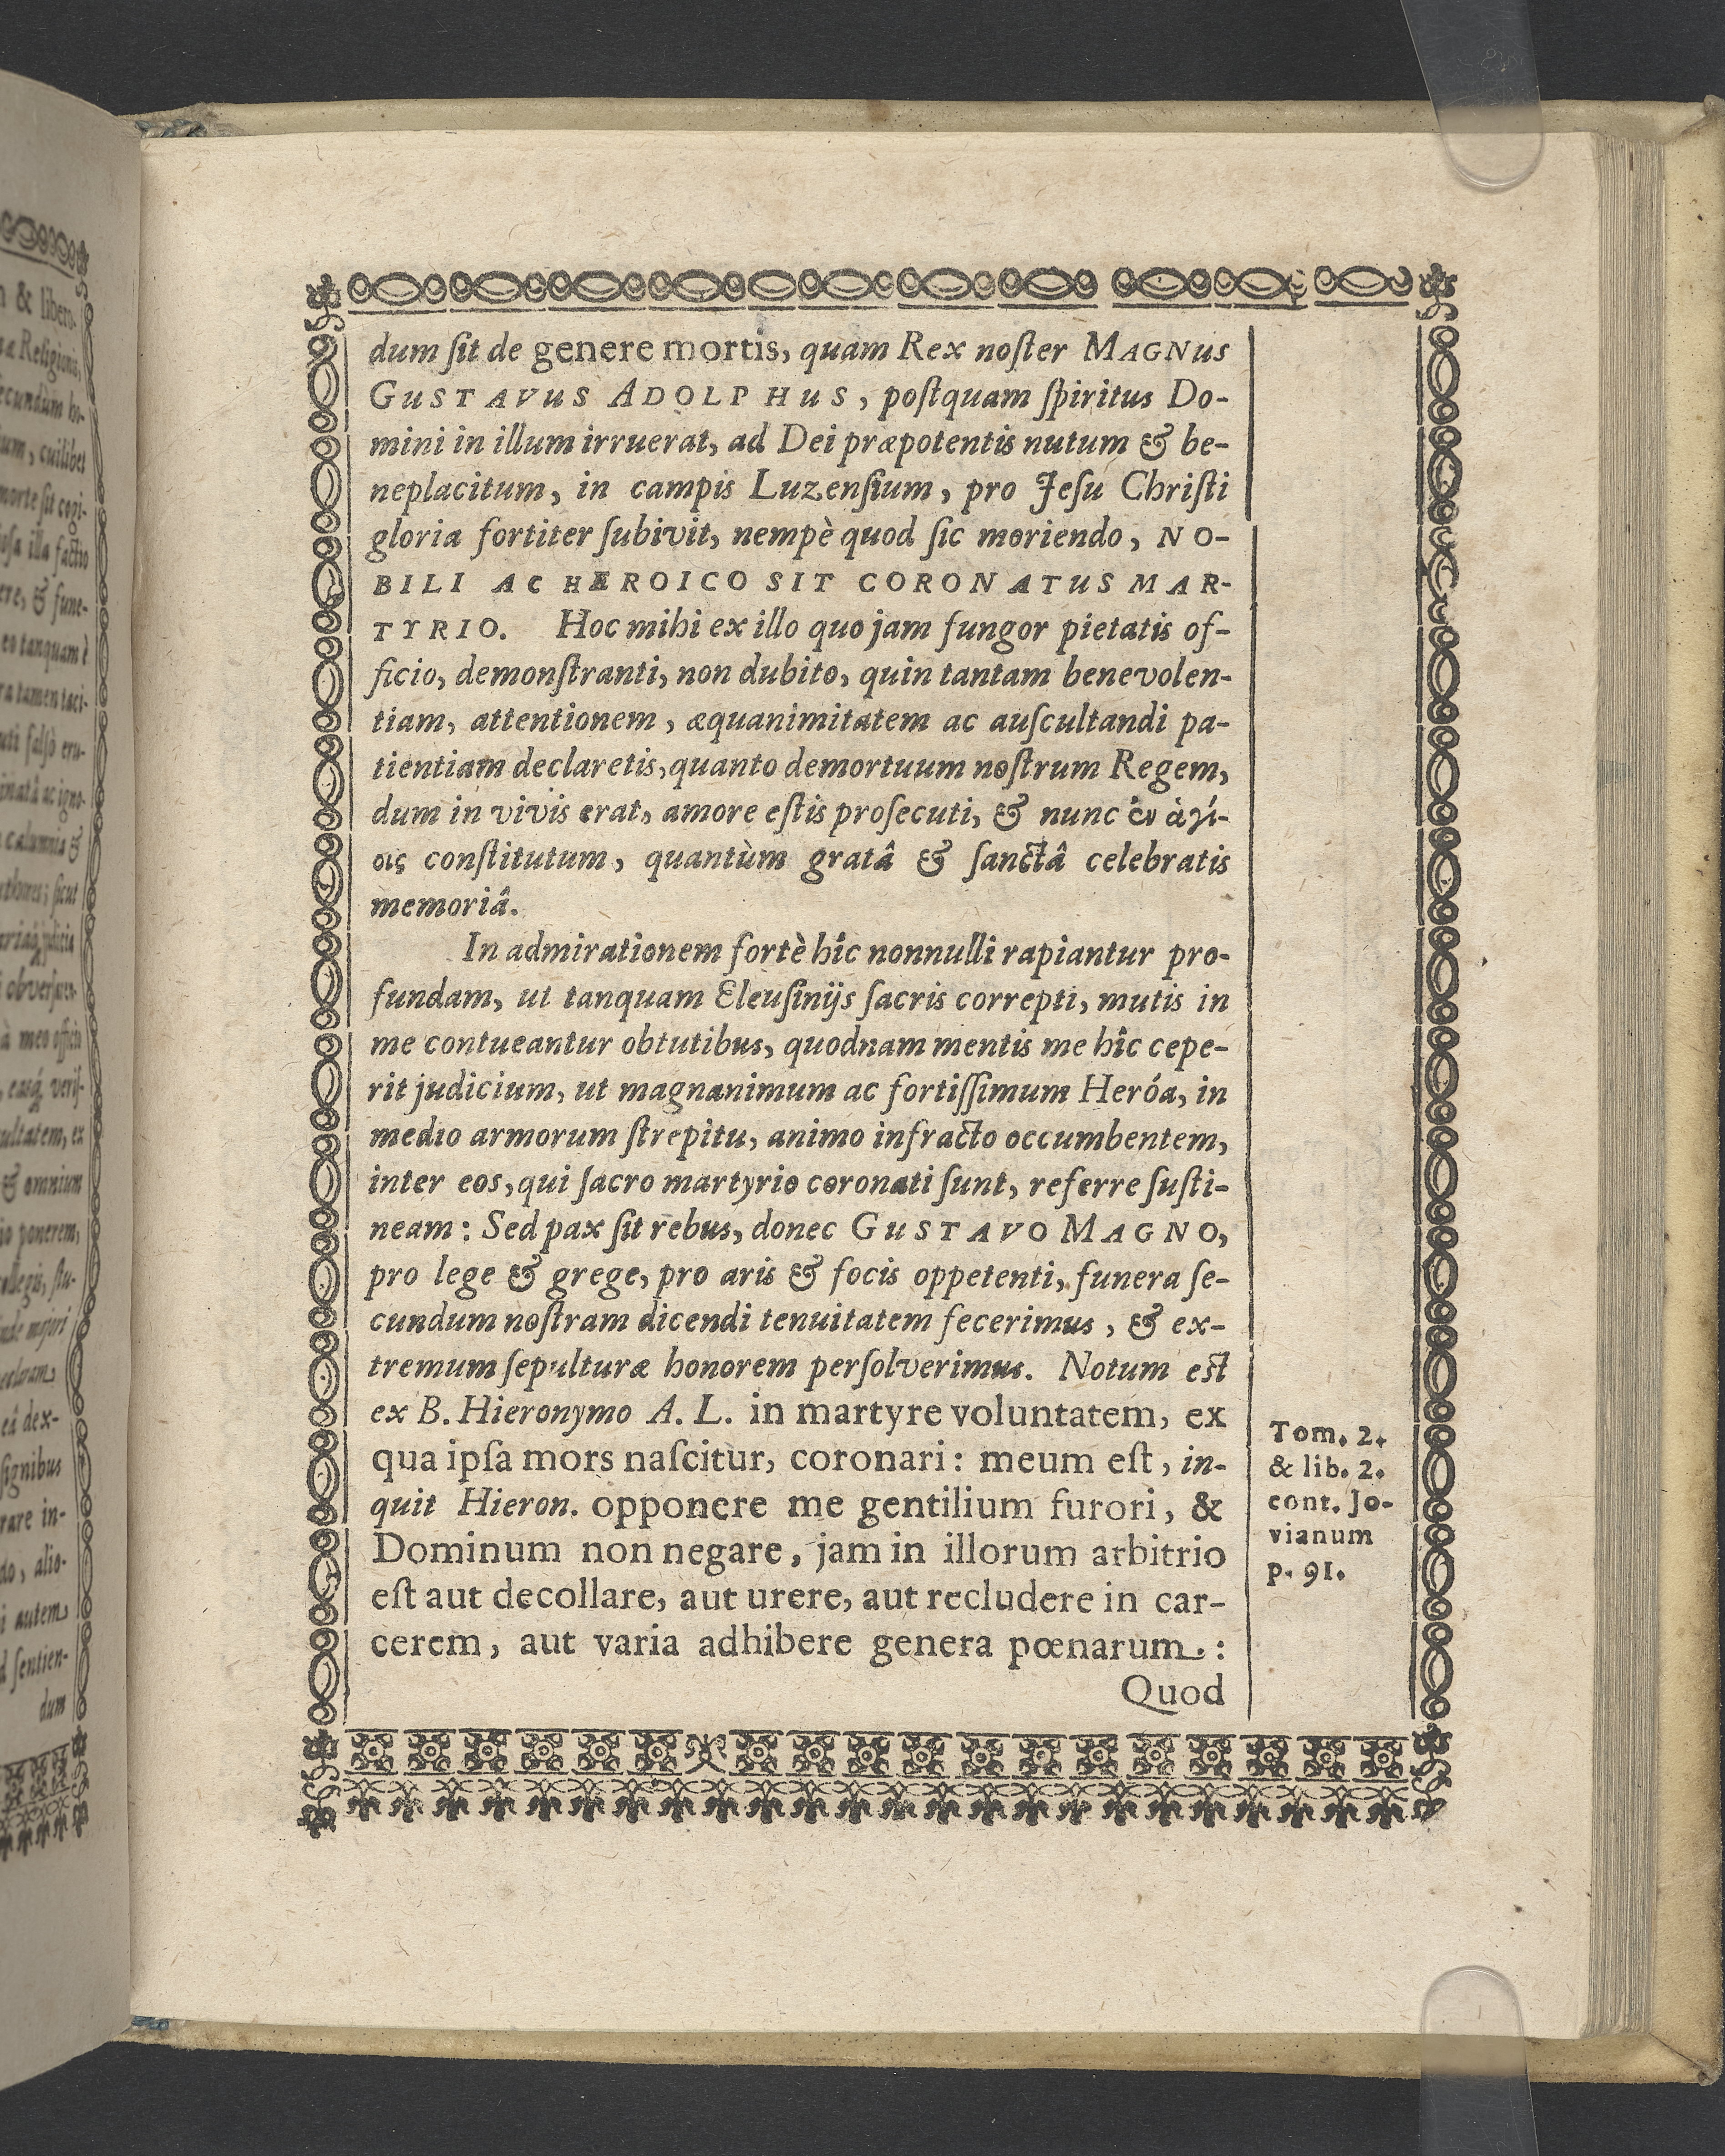 dum ſit de genere mortis, quam Rex noſter MAGNuS
GuSTAVuS ADOLPHuS, poſtquam ſpiritus Do-
mini in illum irruerat, ad Dei præpotentis nutum & be-
neplacitum, in campis Luzenſium, pro Jeſu Chriſti
gloria fortiter ſubivit, nempè quod ſic moriendo, NO-
BILI AC HEROICO SIT CORONATuS MAR-
TYRIO. Hoc mihi ex illo quo jam fungor pietatis of-
ficio, demonſtranti, non dubito, quin tantam benevolen-
tiam, attentionem, æquanimitatem ac auſcultandi pa-
tientiam declaretis, quanto demortuum noſtrum Regem,
dum in vivis erat, amore eſtis proſecuti, & nunc ἐν ἁγί-
οις conſtitutum, quantùm gratâ & ſanctâ celebratis
memoriâ.
In admirationem fortè hîc nonnulli rapiantur pro-
fundam, ut tanquam Eleuſinijs ſacris correpti, mutis in
me contueantur obtutibus, quodnam mentis me hîc cepe-
rit judicium, ut magnanimum ac fortiſſimum Heróa, in
medio armorum ſtrepitu, animo infracto occumbentem,
inter eos, qui ſacro martyrio coronati ſunt, referre ſuſti-
neam: Sed pax ſit rebus, donec GuSTAVO MAGNO,
pro lege & grege, pro aris & focis oppetenti, funera ſe-
cundum noſtram dicendi tenuitatem fecerimus, & ex-
tremum ſepulturæ honorem perſolverimus. Notum eſt
ex B. Hieronymo A. L. in martyre voluntatem, ex
qua ipſa mors naſcitur, coronari: meum eſt, in-
quit Hieron. opponere me gentilium furori, &
Dominum non negare, jam in illorum arbitrio
eſt aut decollare, aut urere, aut recludere in car-
cerem, aut varia adhibere genera pœnarum.:
Quod
Tom. 2.
& lib. 2.
cont. Jo-
vianum
p. 91.